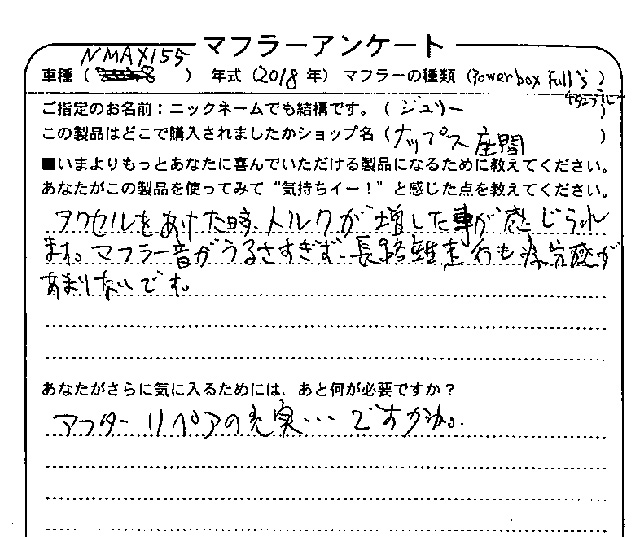 マフラーアンケート
NMAX155
車種( ) 年式(2018年) マフラーの種類(Powerbox Full's)
ご指定のお名前:ニックネームでも結構です。(ジュリー )
この製品はどこで購入されましたかショップ名(ナップス座間 )
■いまよりもっとあなたに喜んでいただける製品になるために教えてください。
あなたがこの製品を使ってみて“気持ちイー!”と感じた点を教えてください。
アクセルをあけた時、トルクが増した事が感じられ
ます。マフラー音がうるさすぎず、長距離走行も疲労感が
あまりないです。
あなたがさらに気に入るためには、あと何が必要ですか?
アフターリペアの充実…ですかね。